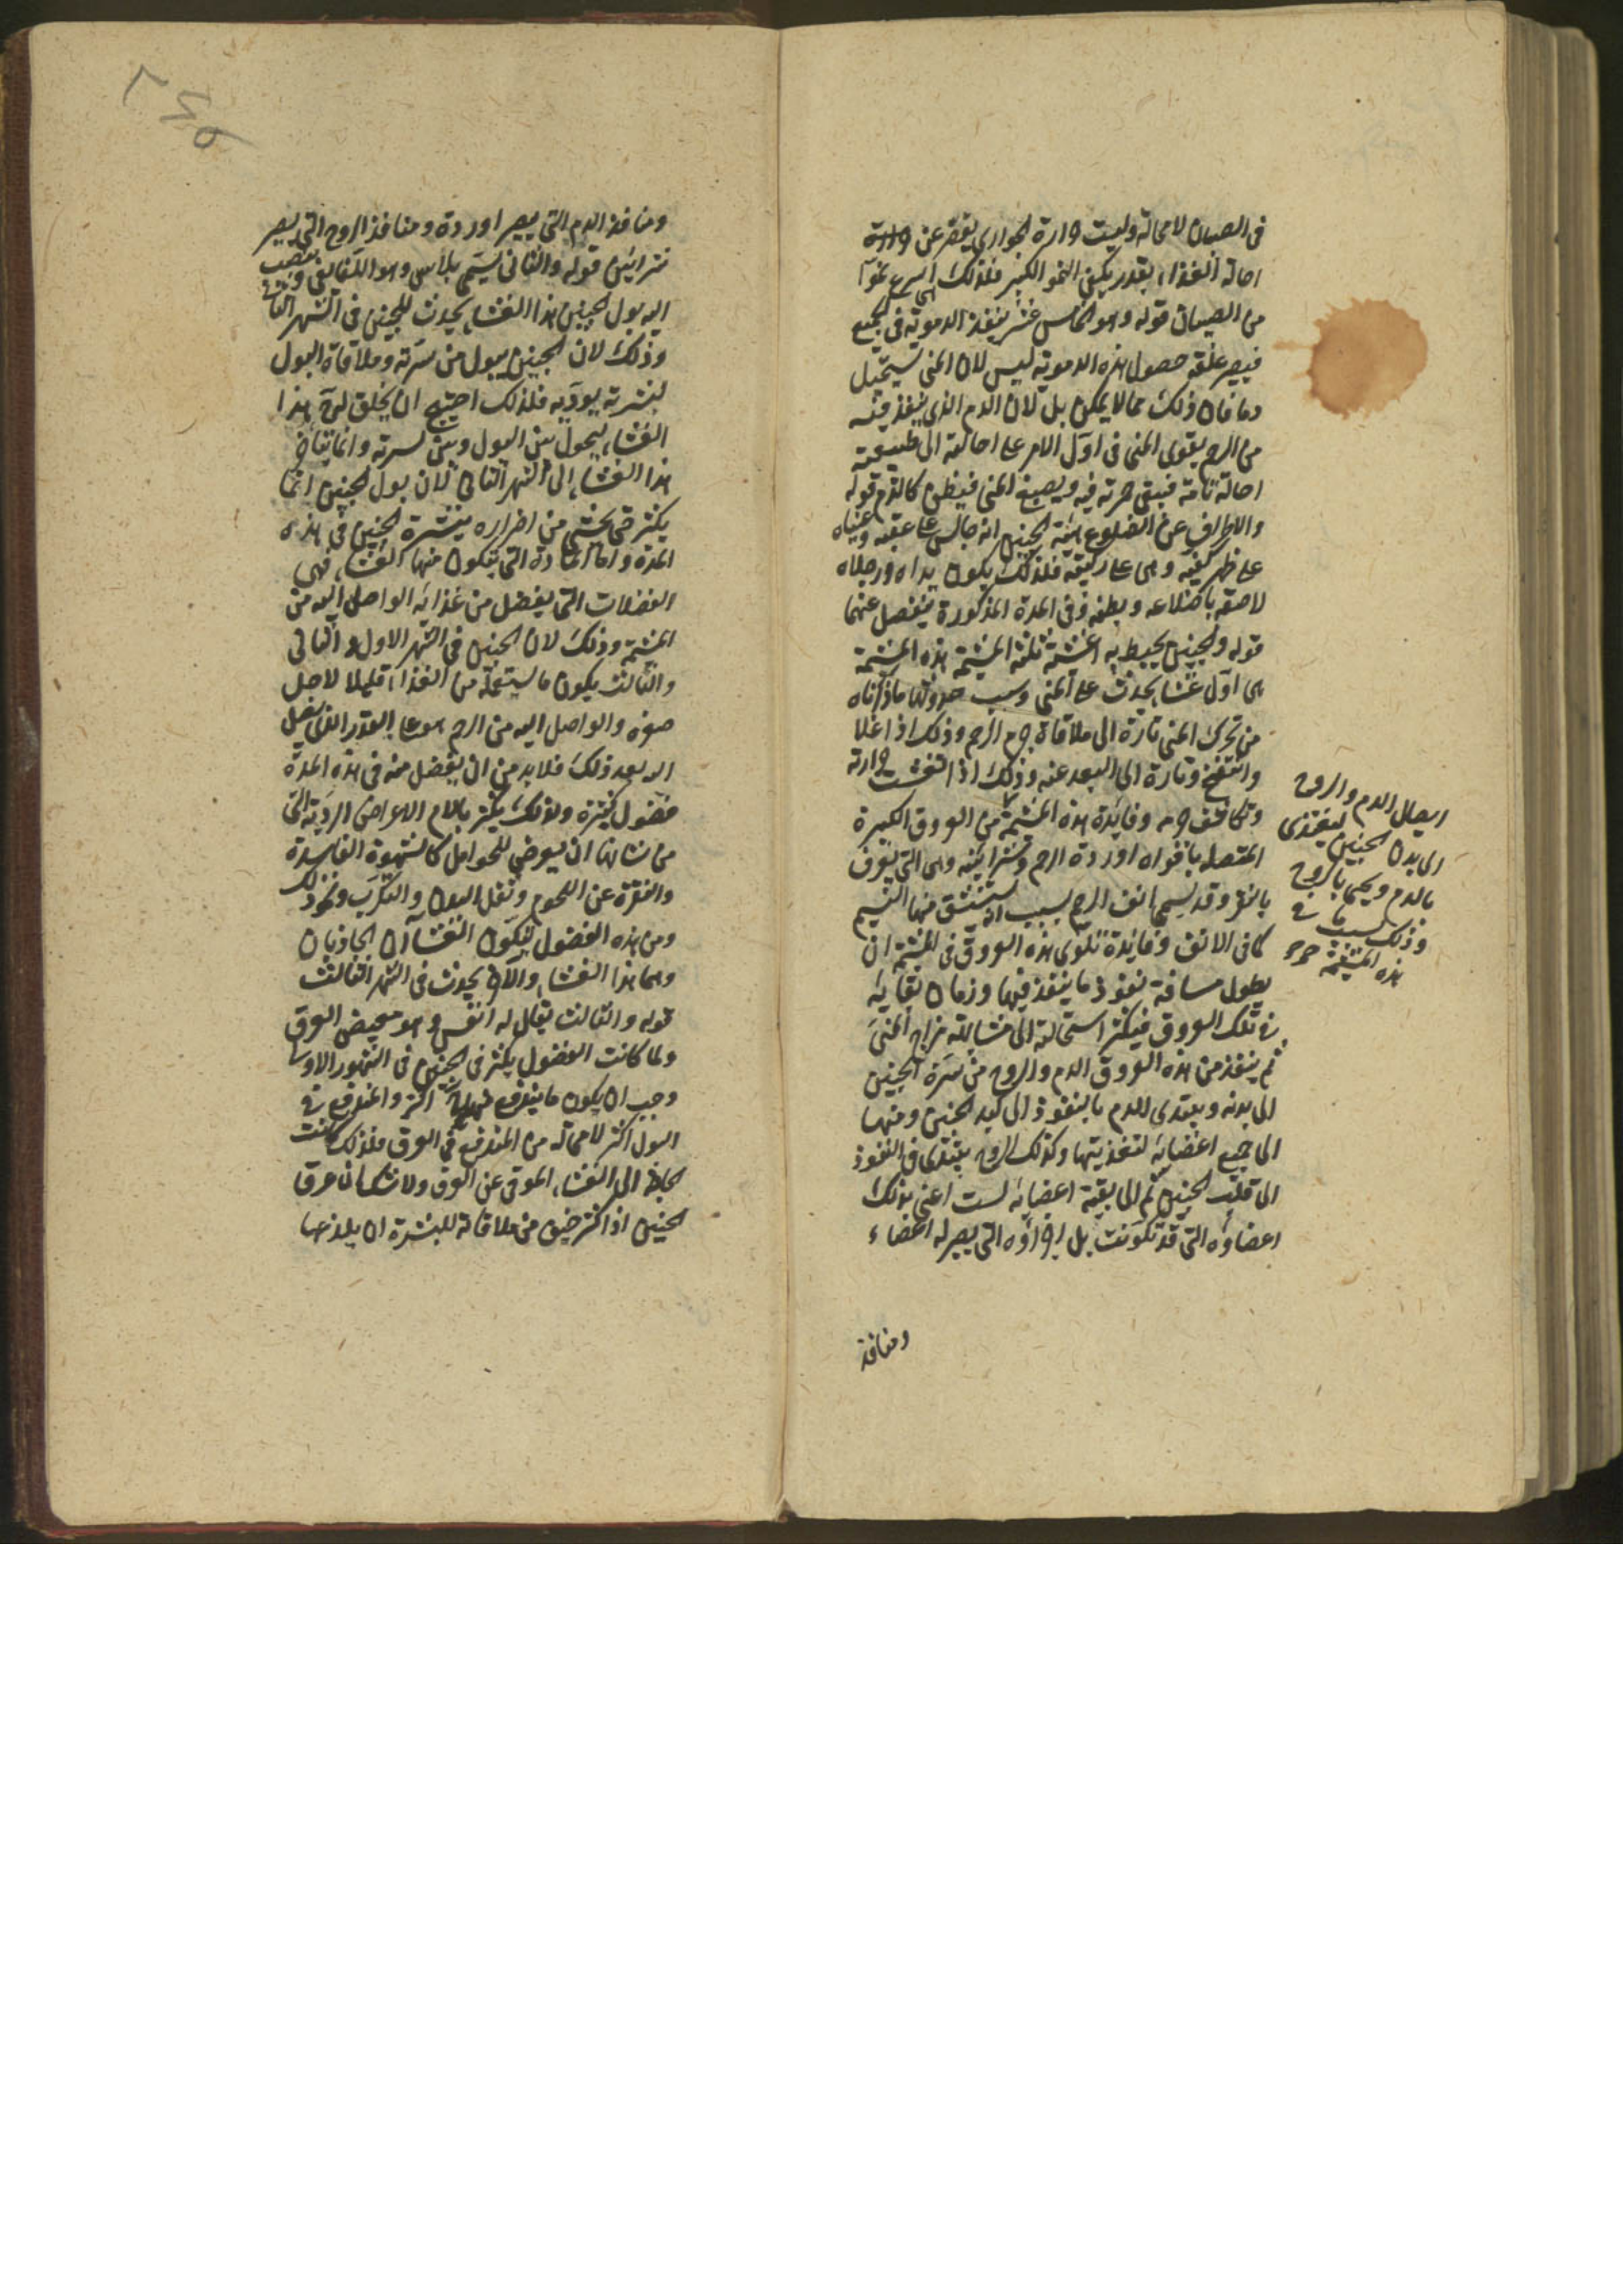 في الصبيان لا محالة وليست حرارة الجواري يقصر عن حرارة
احالة الغذاء بقدر يكفي النمو الكبير فلذلك اسرع نموا
من الصبيان قوله وهو الخامس عشر ينفذ الدموية في الجميع
فيصير علقة حصول هذه الدموية ليس لان المني يستحيل
دما فان ذلك مما لا يمكن بل لان الدم الذي ينفذ فيه
من الرحم يقوى المني في اول الامر على احالته الى طبيعته
احالة تامة فيبقى حمرته فيه ويصبغ المني فيظن كالدم قوله
والاطراف عن الضلوع هيئة الجنين انه جالس على عقبيه وعيناه
على ظهر كفيه وهي على ركبتيه فلذلك يكون يداه ورجلاه
لاصقة باضلاعه وبطنه وفي المدة المذكورة ينفصل عنهما
قوله والجنين يحيط به اغشية ثلثة المشيمة هذه المشيمة
هي اول غشاء يحدث على المني وسبب حدوثها ما ذكرناه
من تحرك المني تارة الى ملاقاة جرم الرحم وذلك اذا غلا
وانتفخ وتارة الى البعد عنه وذلك اذا انفشت حرارته
وتكاثف جرمه وفائدة هذه المشيمة من العروق الكبيرة
المتصلة بافواه اوردة الرحم وشرايينه وهي التي يعرف
بالنقر وقد يسمى انف الرحم بسبب انه يستنشق منها النسيم
كما في الانف وفائدة تلوى هذه العروق في المشيمة ان
يطول مسافة نفوذ ما ينفذ فيها وزمان بقائه
في تلك العروق فيكثر استحالته الى مشاكلة مزاج المني
ثم ينفذ من هذه العروق الدم والروح من سرة الجنين
الى بدنه ويبتدي للدم بالنفوذ الى كبد الجنين ومنها
الى جميع اعضائه لتغذيتها وكذلك الروح يبتدى في النفوذ
الى قلب الجنين ثم الى بقية اعضائه لست اعني بذلك
اعضاؤه التي قد تكونت بل اجزاؤه التي يصير له اعضاء
ومنافذ
ايصال الدم والروح
الى بدن الجنين ليغتذى
بالدم ويحيى بالروح
وذلك لسبب ما في
هذه المشيمة
ومنافذ الدم التي يصير اوردة ومنافذ الروح التي يصير
شرايين قوله والثاني يسمى بلاسى وهو اللفايفي وينصب
اليه بول الجنين هذا الغشاء يحدث للجنين في الشهر الثاني
وذلك لان الجنين يبول من سرته وملاقاة البول
لبشرته يوذيه فلذلك احتيج ان يخلق له هذا
الغشاء ليحول بين البول وبين بشرته وانما يتأخر
هذا الغشاء الى الشهر الثاني لان بول الجنين انما
يكثر حتى يخشى من اضراره ببشرة الجنين في هذه
المدة واما المادة التي يتكون منها الغشاء فهي
الفضلات التي يفضل من غذائه الواصل اليه من
المشيمة وذلك لان الجنين في الشهر الاول والثاني
والثالث يكون ما يستعمله من الغذاء قليلا لاجل
صغره والواصل اليه من الرحم هو على القدر الذي يصل
اليه بعد ذلك فلابد من ان يفضل منه في هذه المدة
فضول كثيرة ولذلك يكثر بالام الاعراض الردية التي
من شانها ان يعرض للحوامل كالشهوة الفاسدة
والنفرة عن اللحوم وثقل البدن والكرب ونحو ذلك
ومن هذه الفضول يتكون الغشاآن الحادثان
وهما هذا الغشاء والآخر يحدث في الشهر الثالث
قوله والثالث يقال له انفس وهو مفيض العرق
ولما كانت الفضول يكثر في الجنين في الشهور الاول
وجب ان يكون ما يندفع منها اكثر والمندفع في
البول اكثر لا محالة من المندفع في العرق فلذلك كانت
الحاجة الى الغشاء الموقي عن العرق ولا شك ان عرق
الجنين اذا كثر خيف من ملاقاته للبشرة ان يلذعها